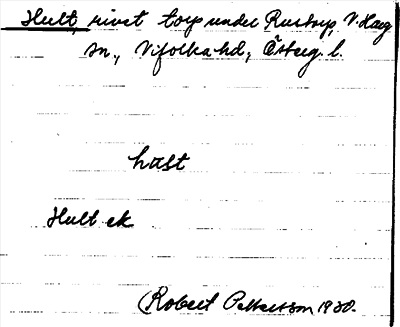 Hult, rivet torp under Rustorp, V. Harg
sn., Vifolka hd, Österg. l.
hult
Hult ek
(Robert Pettersson 1930.